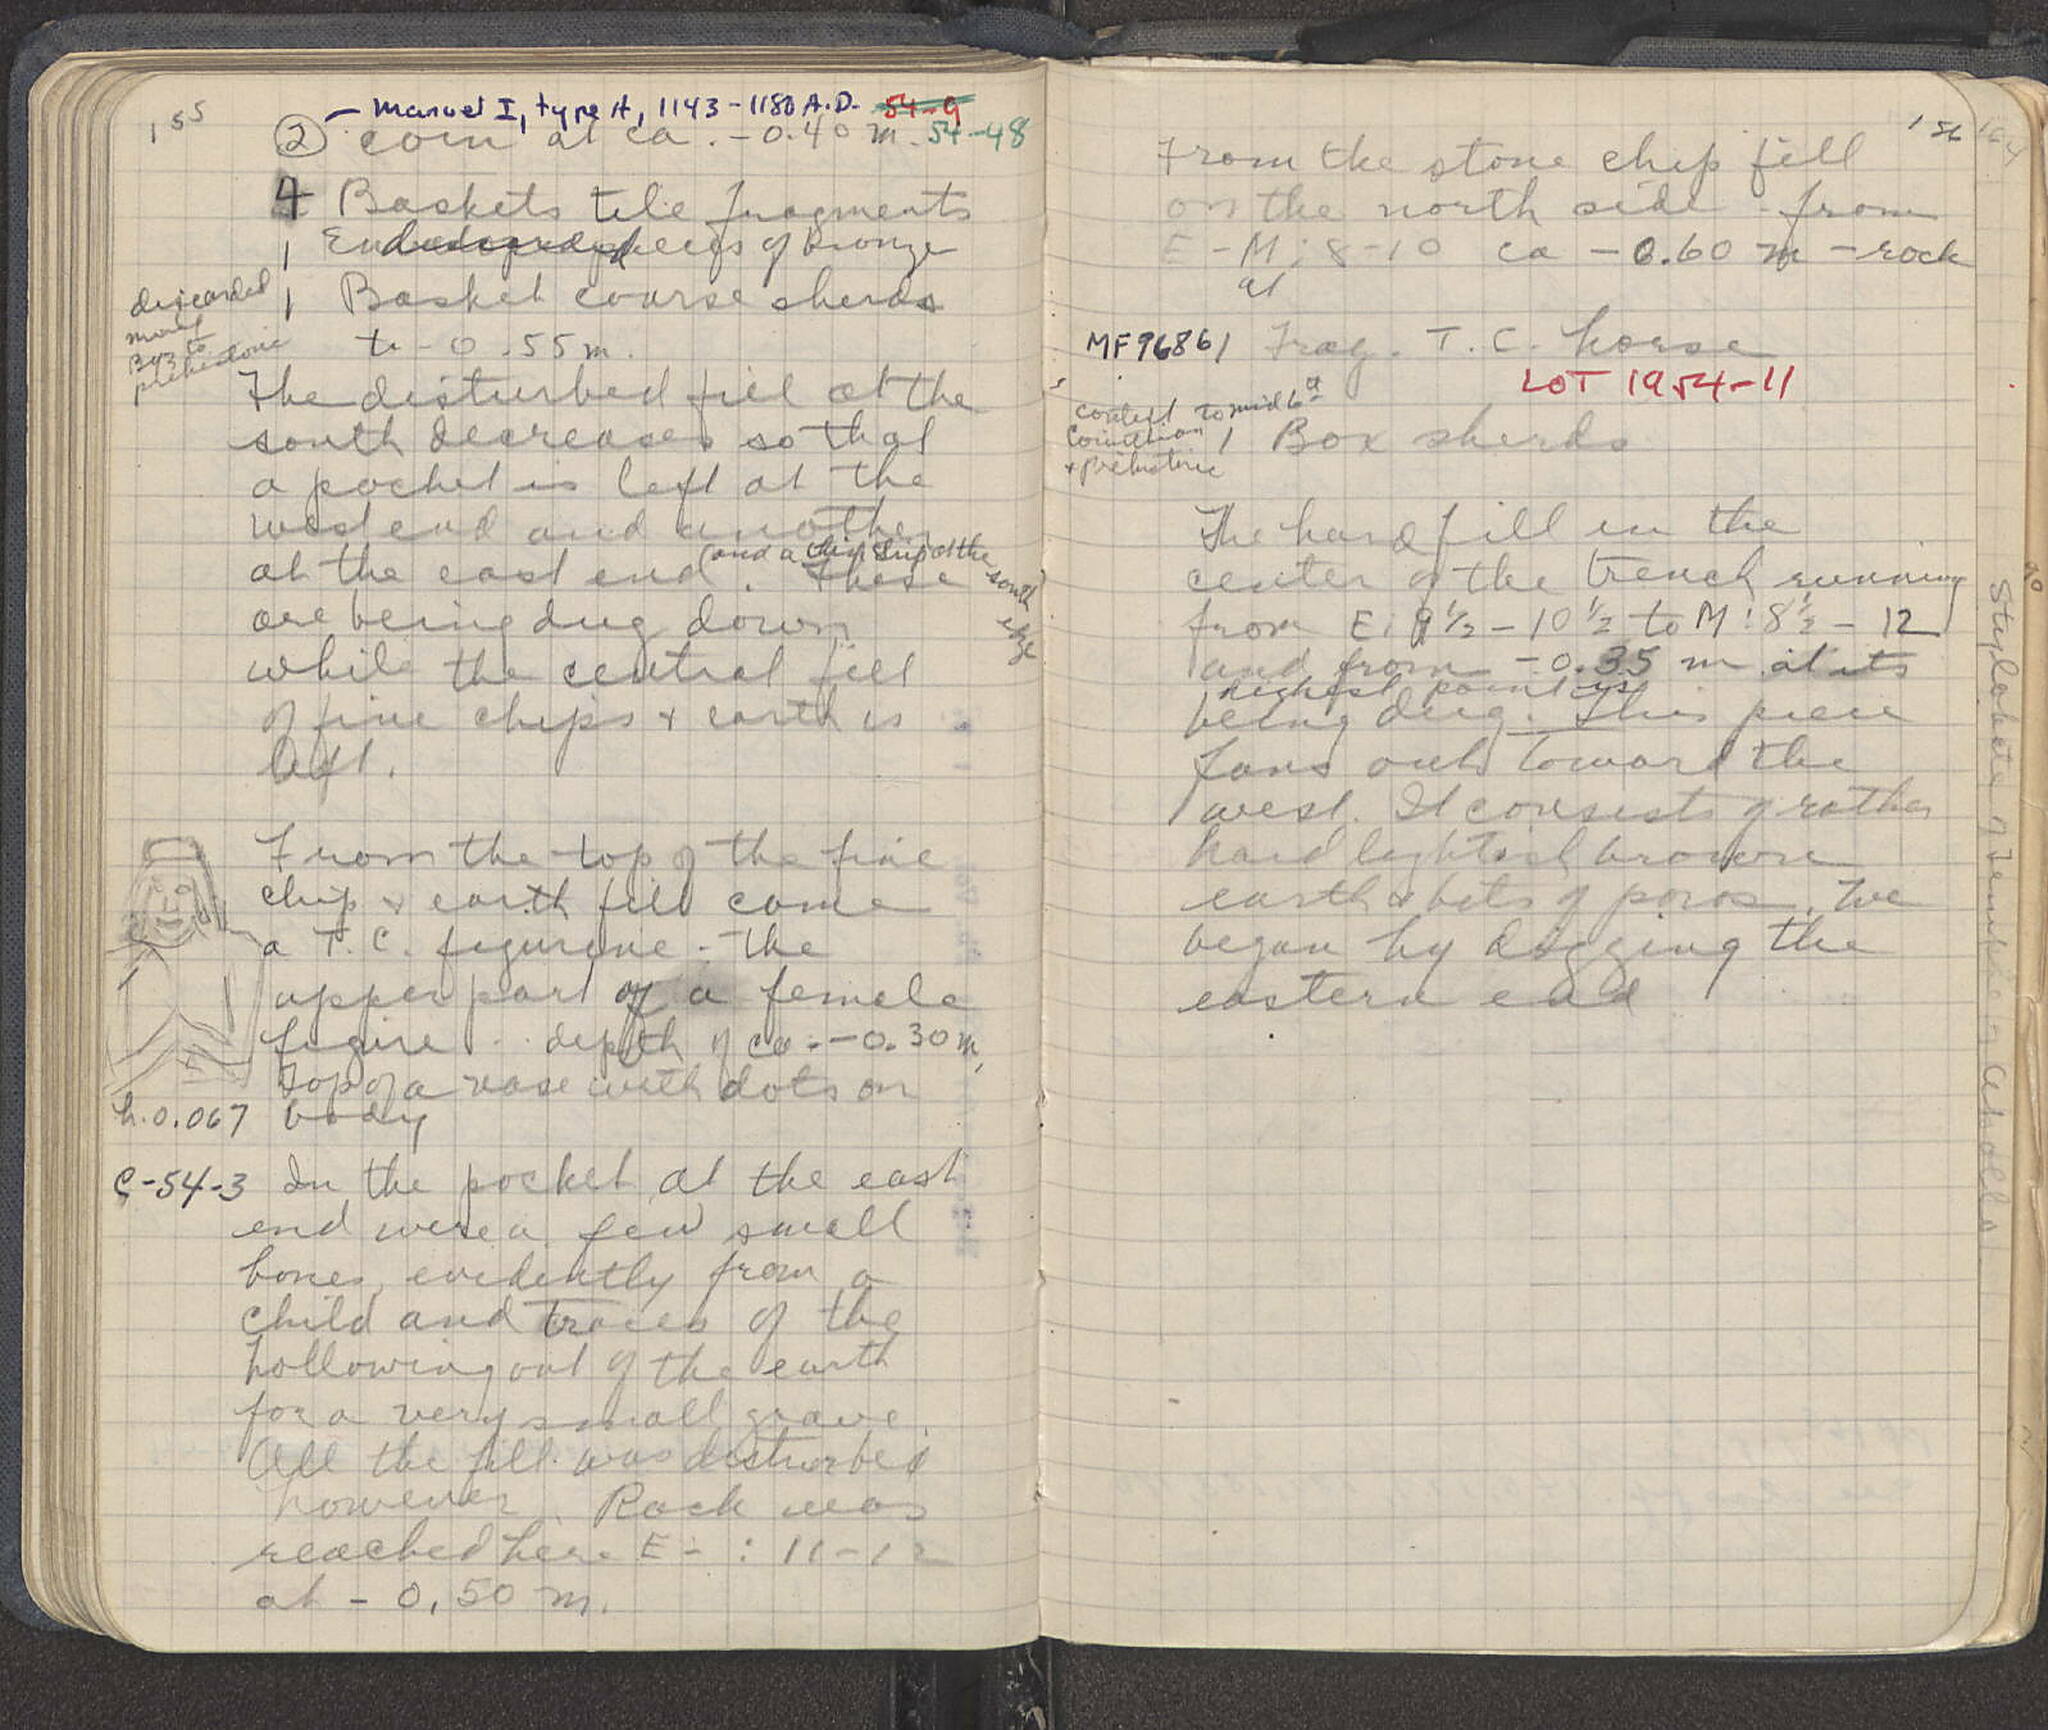 155
— Manuel I, type A, 1143-1180 A.D. 54-9
② coin at ca. -0.40 m. 54-48
4 Baskets tile fragments
1 End of bronze
discarded
mixed
Byz to
prehistoric
1 Basket coarse sherds
to -0.55 m.
The disturbed fill at the
south decreases so that
a pocket is left at the
west end and another
at the east end (and a thin strip at the south edge). These
are being dug down
while the central fill
of fine chips + earth is
left.
From the top of the fine
chip + earth fill came
a T.C. figurine - the
upper part of a female
figure - depth of ca. -0.30 m,
Top of a vase with dots on
h. 0.067 body
C-54-3 In the pocket at the east
end were a few small
bones, evidently from a
child and traces of the
hollowing out of the earth
for a very small grave.
All the fill was disturbed
however. Rock was
reached here E- : 11-12
at -0.50 m.
156
164
From the stone chip fill
on the north side - from
E-M : 8-10 ca -0.60 m - rock
at
MF 9686 1 Frag. T.C. horse
LOT 1954-11
context to mid 6th
Corinthian
+ prehistoric
1 Box sherds
The hard fill in the
center of the trench running
from E: 9½-10½ to M: 8½-12
and from -0.35 m at its
highest point is
being dug. This piece
fans out toward the
west. It consists of rather
hard lightish brown
earth & bits of poros. We
began by digging the
eastern end
Stylobate of Temple Apollo